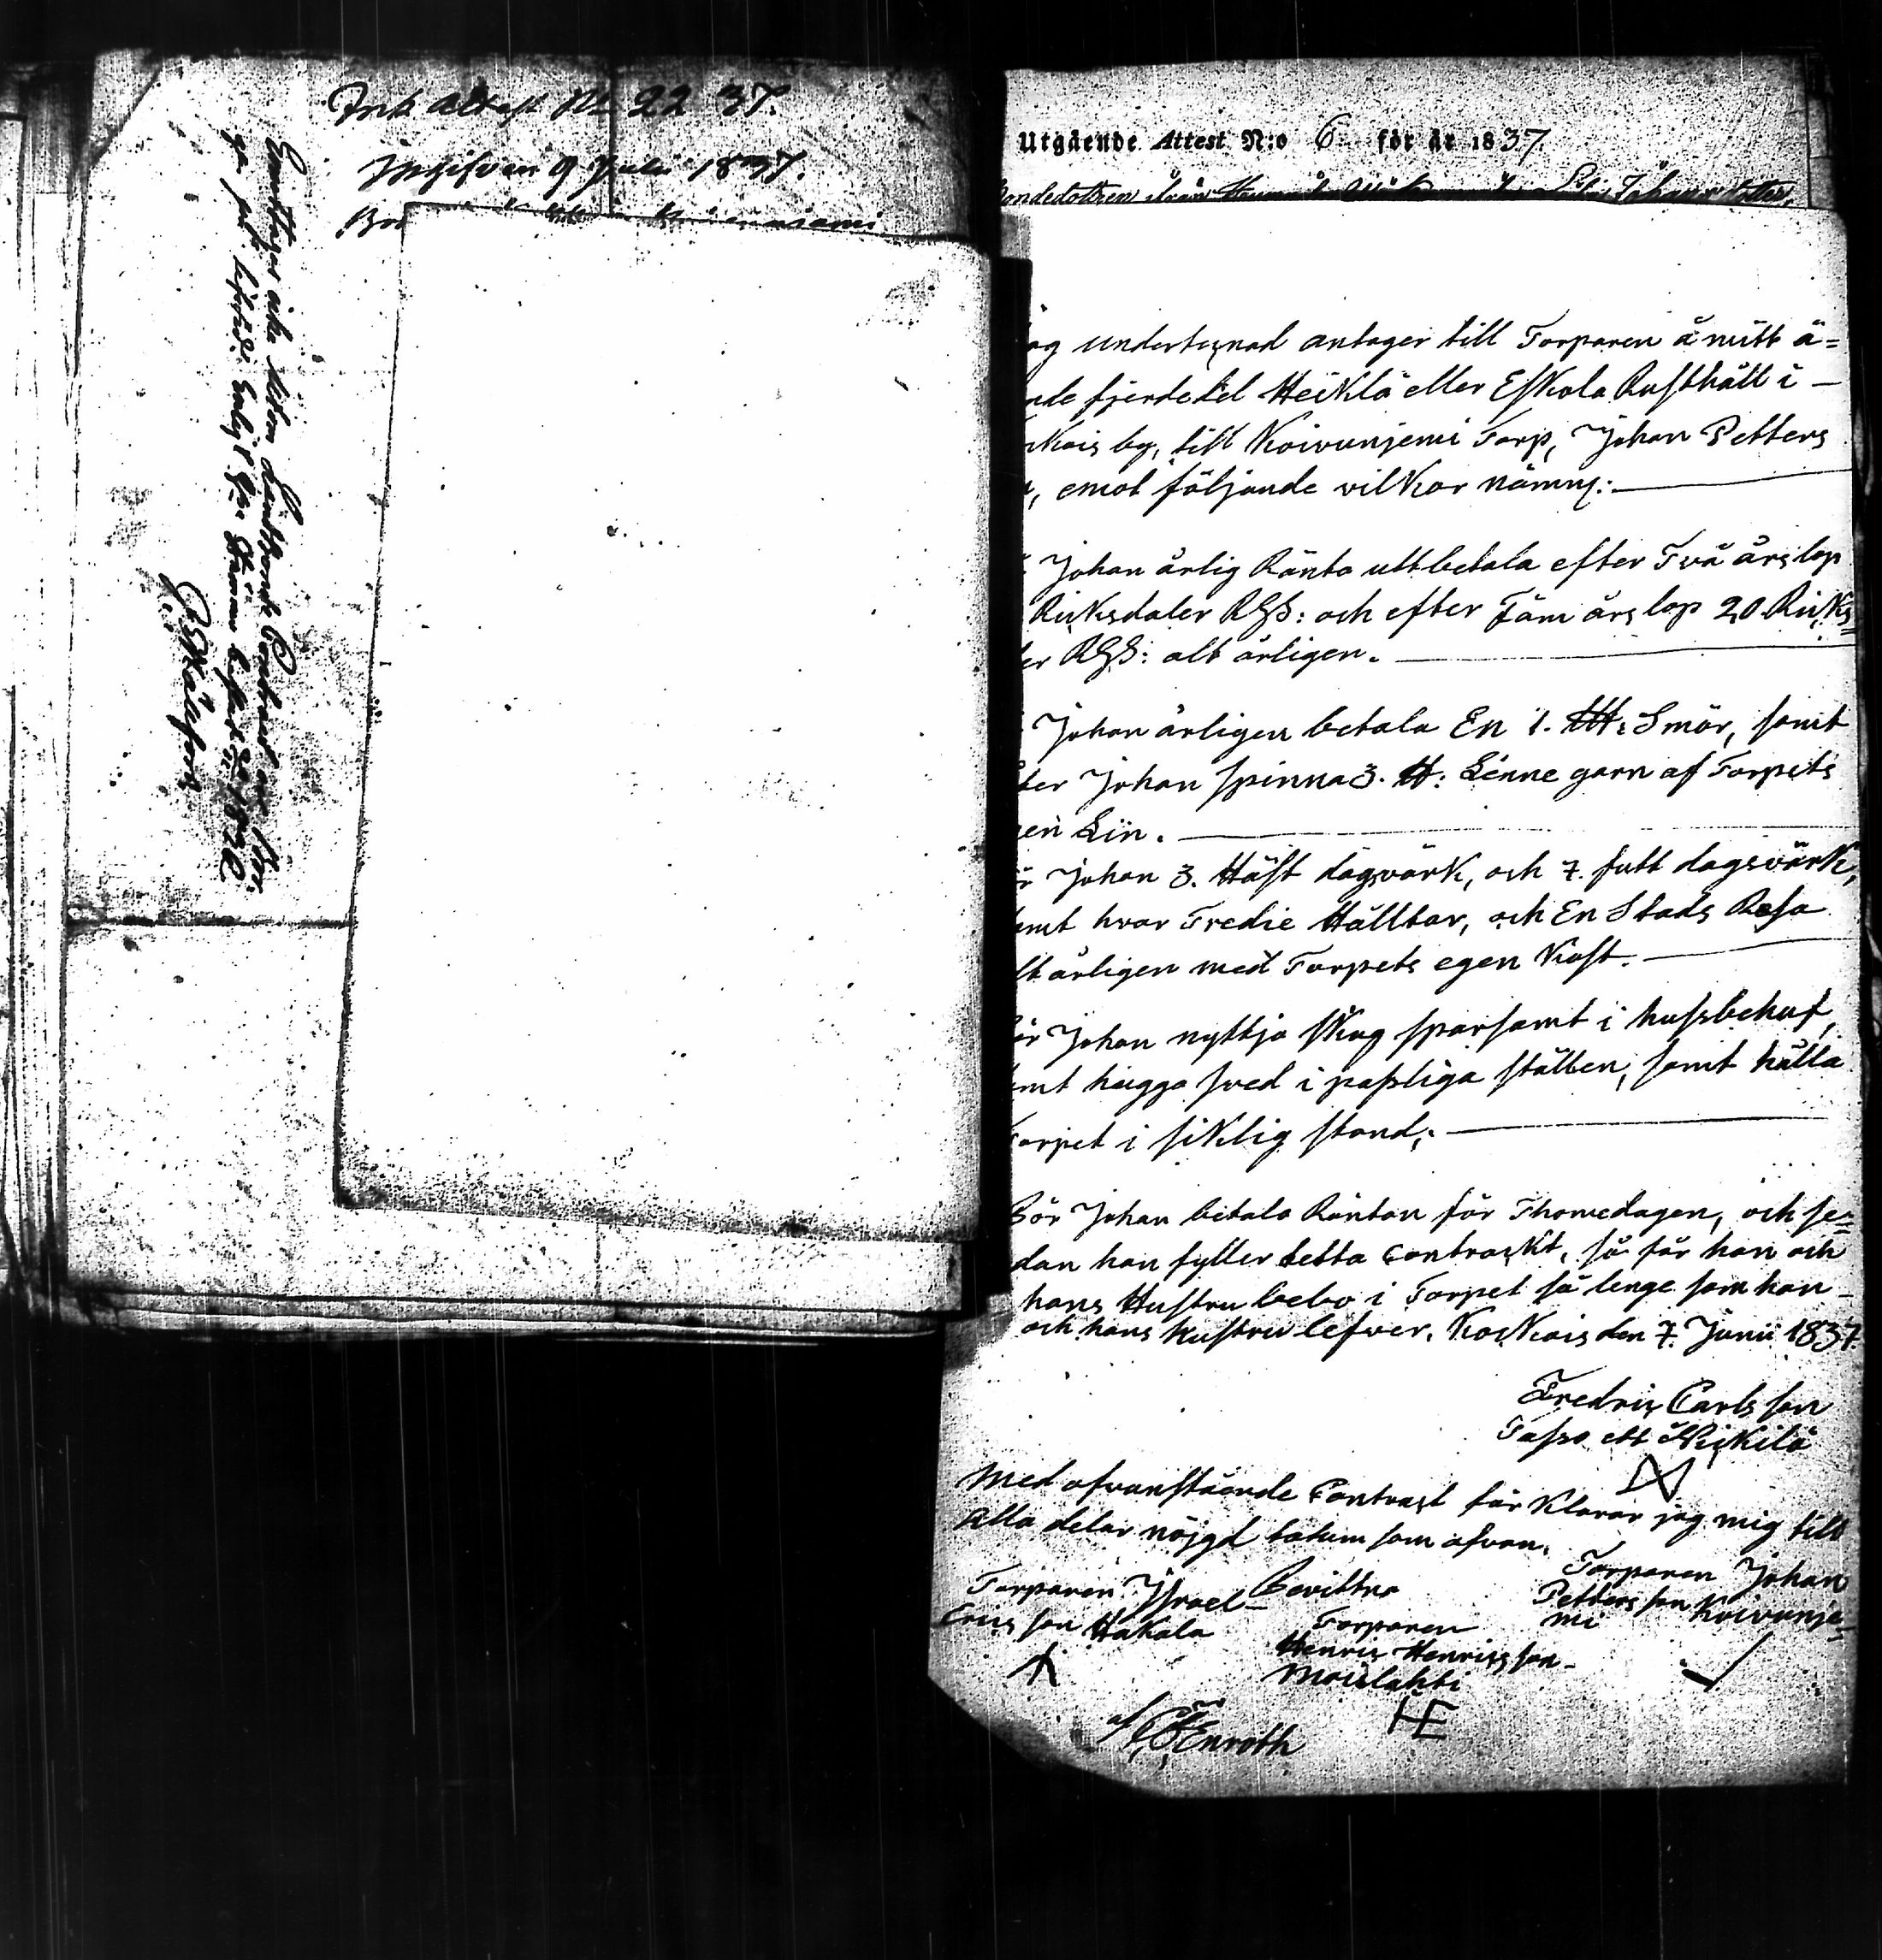 Ink Attest No 22 37.
Ingifven 9 Julii 1837.
Emottages icke utom Landtbonde Contract
Strömma
Utgående Attest N:o 6 för år 1837.
Johansdotter,
ag undertegnad antager till Torparen å mitt ä=
nde fjerdedel Heiklä eller Eskola Rusthåll i —
Kais by, till Koivunjemi Torp, Johan Petters
n, emot följande vilkor nämnl:
Johan årlig Ränta uttbetala efter Två års lop
Ricksdaler RGS: och efter Fäm års lop 20 Ricks=
er RGS: alt årligen.
Johan årligen betala En 1. ℔: Smör, samt
ter Johan spinna 3. ℔: Linne garn af Torpets
en Lin.
r Johan 3. Häst dagsvärk, och 7. futt dagsvärk,
mt hvar Tredie Hålltar, och En Stads Resa
lt årligen med Torpets egen Kost.
ör Johan nyttja skog sparsamt i hussbehof,
mt hugga sved i passliga ställen, samt hålla
Torpet i siktig stånd;
Bör Johan betala Räntan för Thomedagen, och se=
dan han fyller detta Contrackt, så får han och
hans Hustru bebo i Torpet så lenge som han
och hans hustru lefver. Koskais den 7. Junii 1837.
Fredric Carlsson
Med ofvanstående Contract förklarar jag mig till
Alla delar nöjgd datum som ofvan.
Torparen Johan
Pettersson Koivunje=
mi
Bevittna
Torparen Israel
Ericsson Hakala
Torparen
Henric Henricsson
HE
af C F Enroth